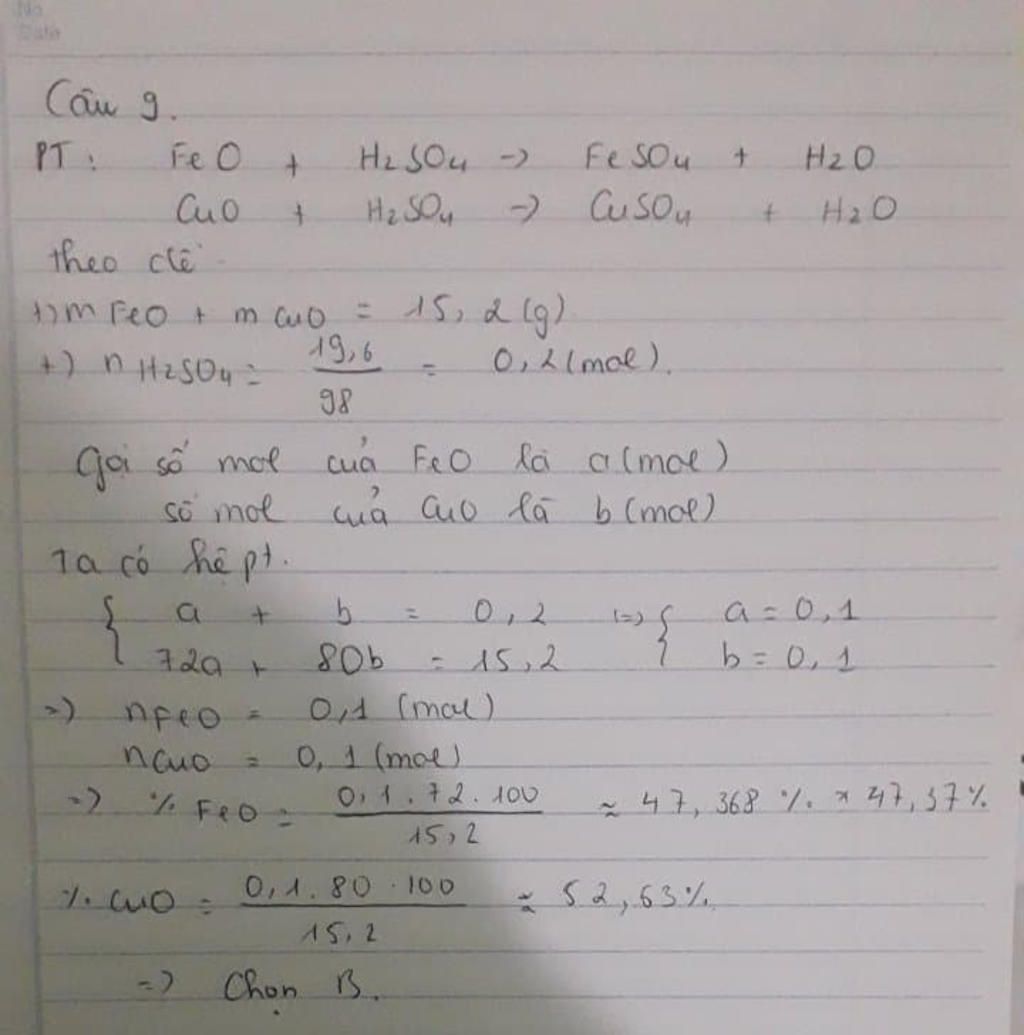 No
Date
Câu 9.
PT: FeO + H2SO4 -> FeSO4 + H2O
CuO + H2SO4 -> CuSO4 + H2O
theo đề
+) m FeO + m CuO = 15,2 (g)
+) n H2SO4 = 19,6 / 98 = 0,2 (mol).
Gọi số mol của FeO là a (mol)
số mol của CuO là b (mol)
Ta có hệ pt.
{ a + b = 0,2 (=> { a = 0,1
72a + 80b = 15,2 b = 0,1
=> nFeO = 0,1 (mol)
nCuO = 0,1 (mol)
=> % FeO = 0,1.72.100 / 15,2 ≈ 47,368 % ≈ 47,37%
% CuO = 0,1.80.100 / 15,2 ≈ 52,63%
=> Chọn B.